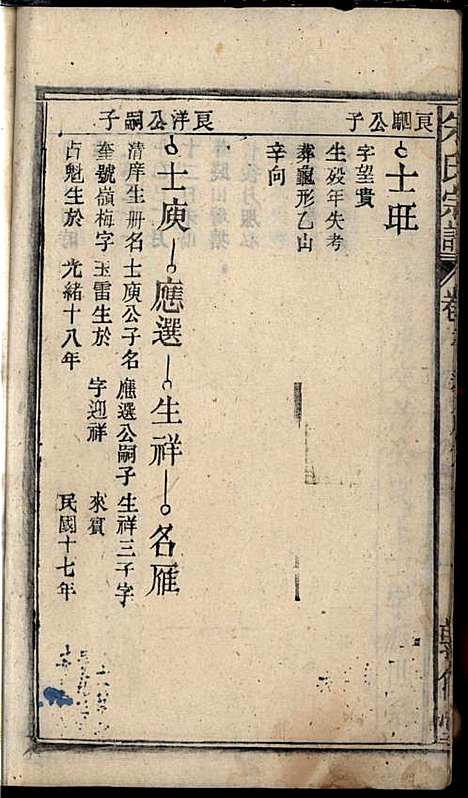 氏宗譜 卷
良公子
士
字望貴
生歿年失考
葬龜形乙山
辛向
良洋公嗣子
士庚 應選 生祥 名雁
清庠生册名 士庚公子名 應選公嗣子 生祥三子字
奎號嶺梅字 玉雷生於 字迎祥 來賓
占魁生於 光緒十八年 民國十七年